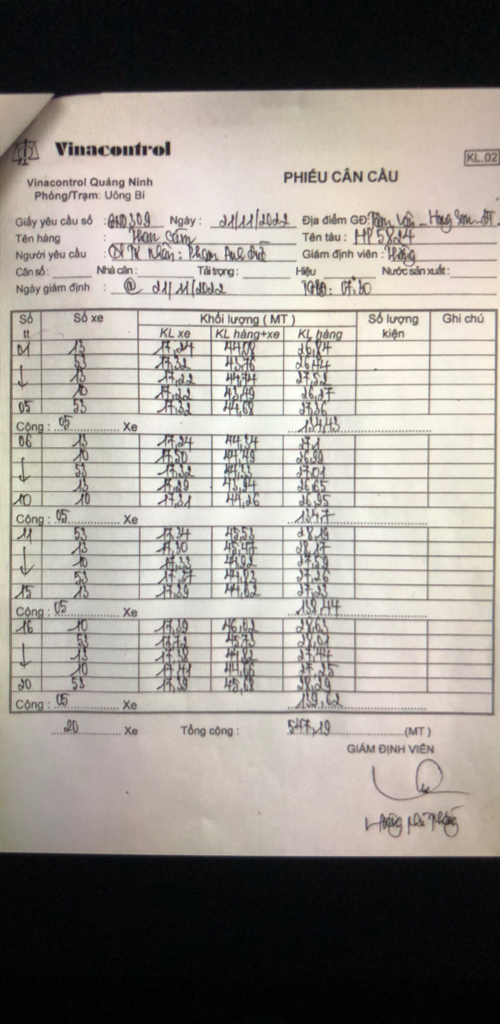 Vinacontrol
KL.02
PHIẾU CÂN CẦU
Vinacontrol Quảng Ninh
Phòng/Trạm: Uông Bí
Giấy yêu cầu số : Ngày : 21/11/2022 Địa điểm GĐ:
Tên hàng : Than Cám Tên tàu : HP 5824
Người yêu cầu : Giám định viên : Thắng
Cân số : Nhà cân : Tải trọng : Hiệu Nước sản xuất :
Ngày giám định : @ 21/11/2022 07:30
Số tt Số xe Khối lượng ( MT ) Số lượng kiện Ghi chú
KL xe KL hàng+xe KL hàng
01 13 17,24 44,08 26,84
53 17,32 43,76 26,44
13 17,22 44,74 27,52
10 17,22 43,49 26,27
05 53 17,32 44,68 27,36
Cộng : 05 Xe 134,43
06 13 17,24 44,34 27,1
10 17,50 44,49 26,99
53 17,32 44,33 27,01
13 17,29 43,94 26,65
10 10 17,31 44,26 26,95
Cộng : 05 Xe 134,7
11 53 17,34 45,53 28,19
13 17,30 45,47 28,17
10 17,33 44,92 27,59
53 17,57 44,83 27,26
15 13 17,39 44,62 27,23
Cộng : 05 Xe 138,44
16 10 17,39 46,02 28,63
53 17,72 45,73 28,01
13 17,38 44,82 27,44
10 17,41 44,66 27,25
20 53 17,39 45,68 28,29
Cộng : 05 Xe 139,62
20 Xe Tổng cộng : 547,19 (MT )
GIÁM ĐỊNH VIÊN